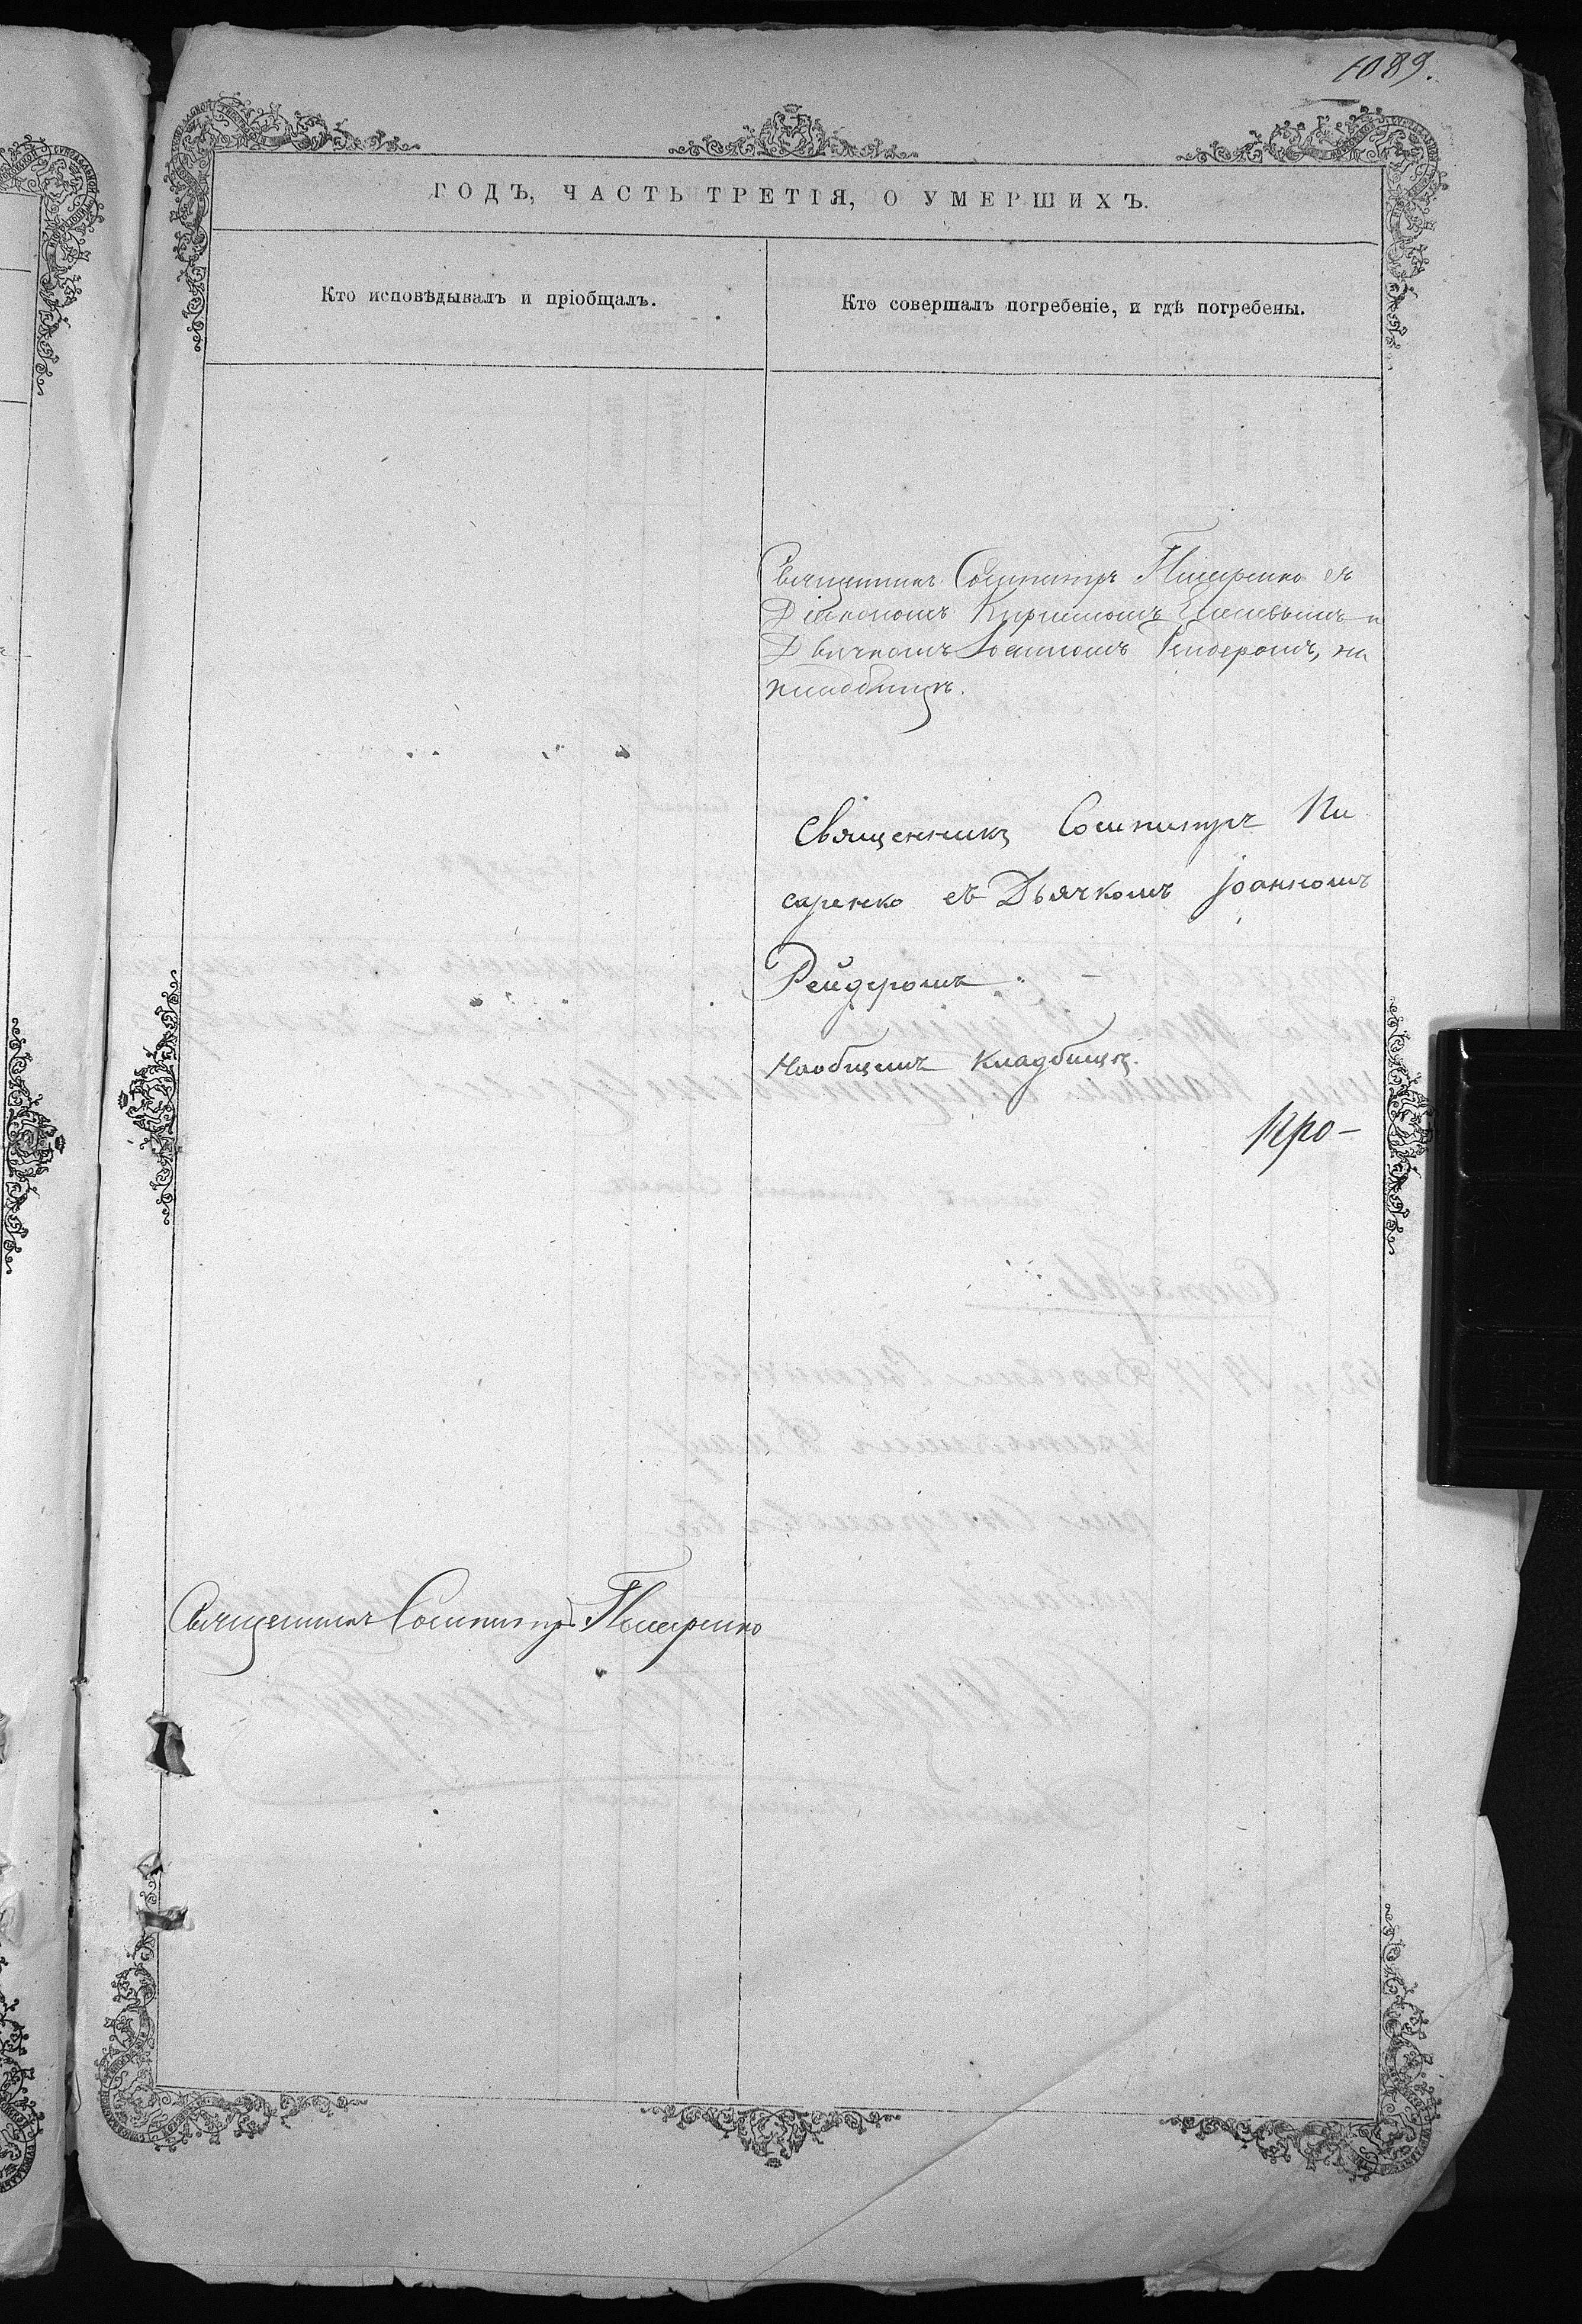 1089.
ГОДЪ, ЧАСТЬ ТРЕТІЯ, О УМЕРШИХЪ.
Кто исповѣдывалъ и пріобщалъ.
Кто совершалъ погребеніе, и гдѣ погребены.
Священникъ Сосипатръ Писаренко съ
Діакономъ Кириллом и
Дьячкомъ Іоанномъ Рейдеромъ, на
кладбищѣ.
Священникъ Сосипатръ Пи
саренко съ Дьячкомъ Іоанномъ
Рейдеромъ
Наобщемъ кладбищѣ.
Про-
Священникъ Сосипатръ Писаренко